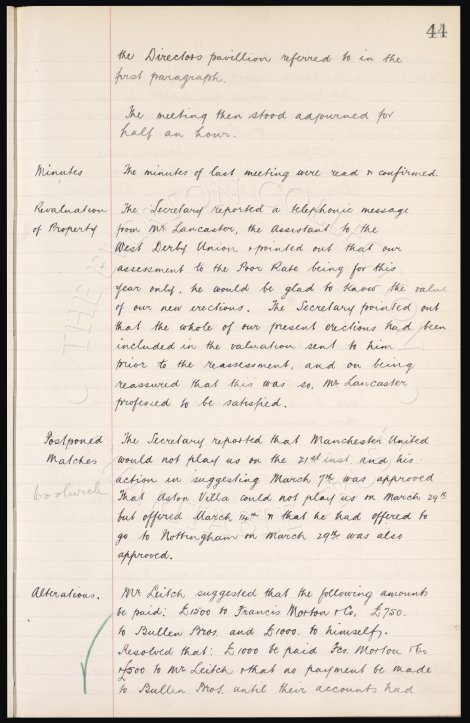 44
the Directors pavillion referred to in the
first paragraph.
The meeting then stood adjourned for
half an hour.
Minutes
The minutes of last meeting were read & confirmed.
Revaluation
of Property
The Secretary reported a telephonic message
from Mr. Lancaster, the Assistant to the
West Derby Union & pointed out that our
assessment to the Poor Rate being for this
year only, he would be glad to know the value
of our new erections. The Secretary pointed out
that the whole of our present erections had been
included in the valuation sent to him
prior to the reassessment, and on being
reassured that this was so, Mr Lancaster
professed to be satisfied.
Postponed
Matches
Woolwich
The Secretary reported that Manchester United
would not play us on the 21st inst. and his
action in suggesting March 7th was approved
That Aston Villa could not play us on March 29th
but offered March 14th & that he had offered to
go to Nottingham on March 29th was also
approved.
Alterations.
Mr Leitch suggested that the following amounts
be paid: £1500 to Francis Morton & Co, £750.
to Bullen Bros. and £1000. to himself.
Resolved that: £1000 be paid Fcs. Morton & Co
& £500 to Mr Leitch & that no payment be made
to Bullen Bros. until their accounts had